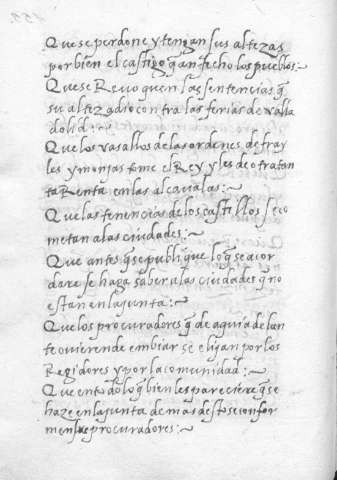 Que se perdone y tengan sus altezas
por bien el castigo q̃ an fecho los pueblos:~
Que se Revoquen las sentencias q̃
su alteza dio contra las ferias de valla
dolid:~
Que los vasallos de las ordenes de fray
les y monjas tome el Rey y les de otra tan
ta Renta en las alcavalas:~
Que las tenencias de los castillos se co
metan a las ciudades:~
Que antes q̃ se publique lo q̃ se acor
dare se haga saber a las ciudades q̃ no
estan en la junta:~
Que los procuradores q̃ de aqui adelan
te ovieren de embiar se elijan por los
Regidores y por la comunidad:~
Que en todo lo q̃ bien les pareciere q̃ se
haze en la junta de mas desto se confor
men los procuradores:~